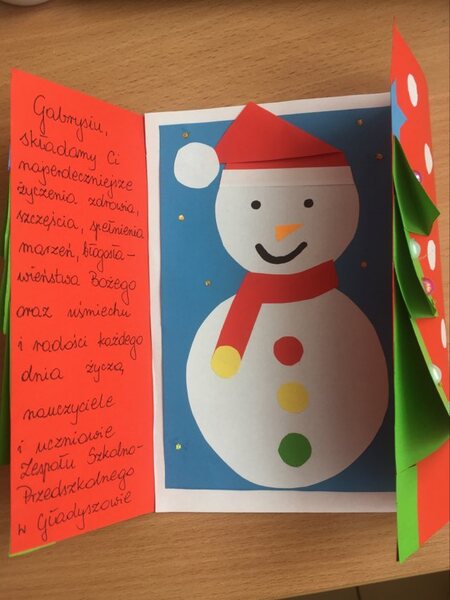 Gabrysiu,
składamy Ci
najserdeczniejsze
życzenia zdrowia,
szczęścia, spełnienia
marzeń, błogosła-
wieństwa Bożego
oraz uśmiechu
i radości każdego
dnia życzą
nauczyciele
i uczniowie
Zespołu Szkolno-
Przedszkolnego
w Gładyszowie